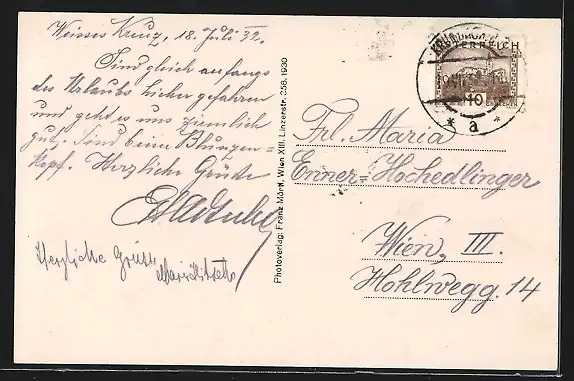 Weisses Kreuz, 18. Juli 32.
Sind gleich anfangs
des Urlaubs hieher gefahren
und geht es uns ziemlich
gut. Sind beim Blunzen=
kopf. Herzliche Grüsse
Herzliche Grüsse
Photoverlag: Franz Mörtl, Wien XIII, Linzerstr. 358. 1930
ÖSTERREICH
10
* a *
Frl. Maria
Enner=Hochedlinger
Wien, III.
Hohlwegg. 14